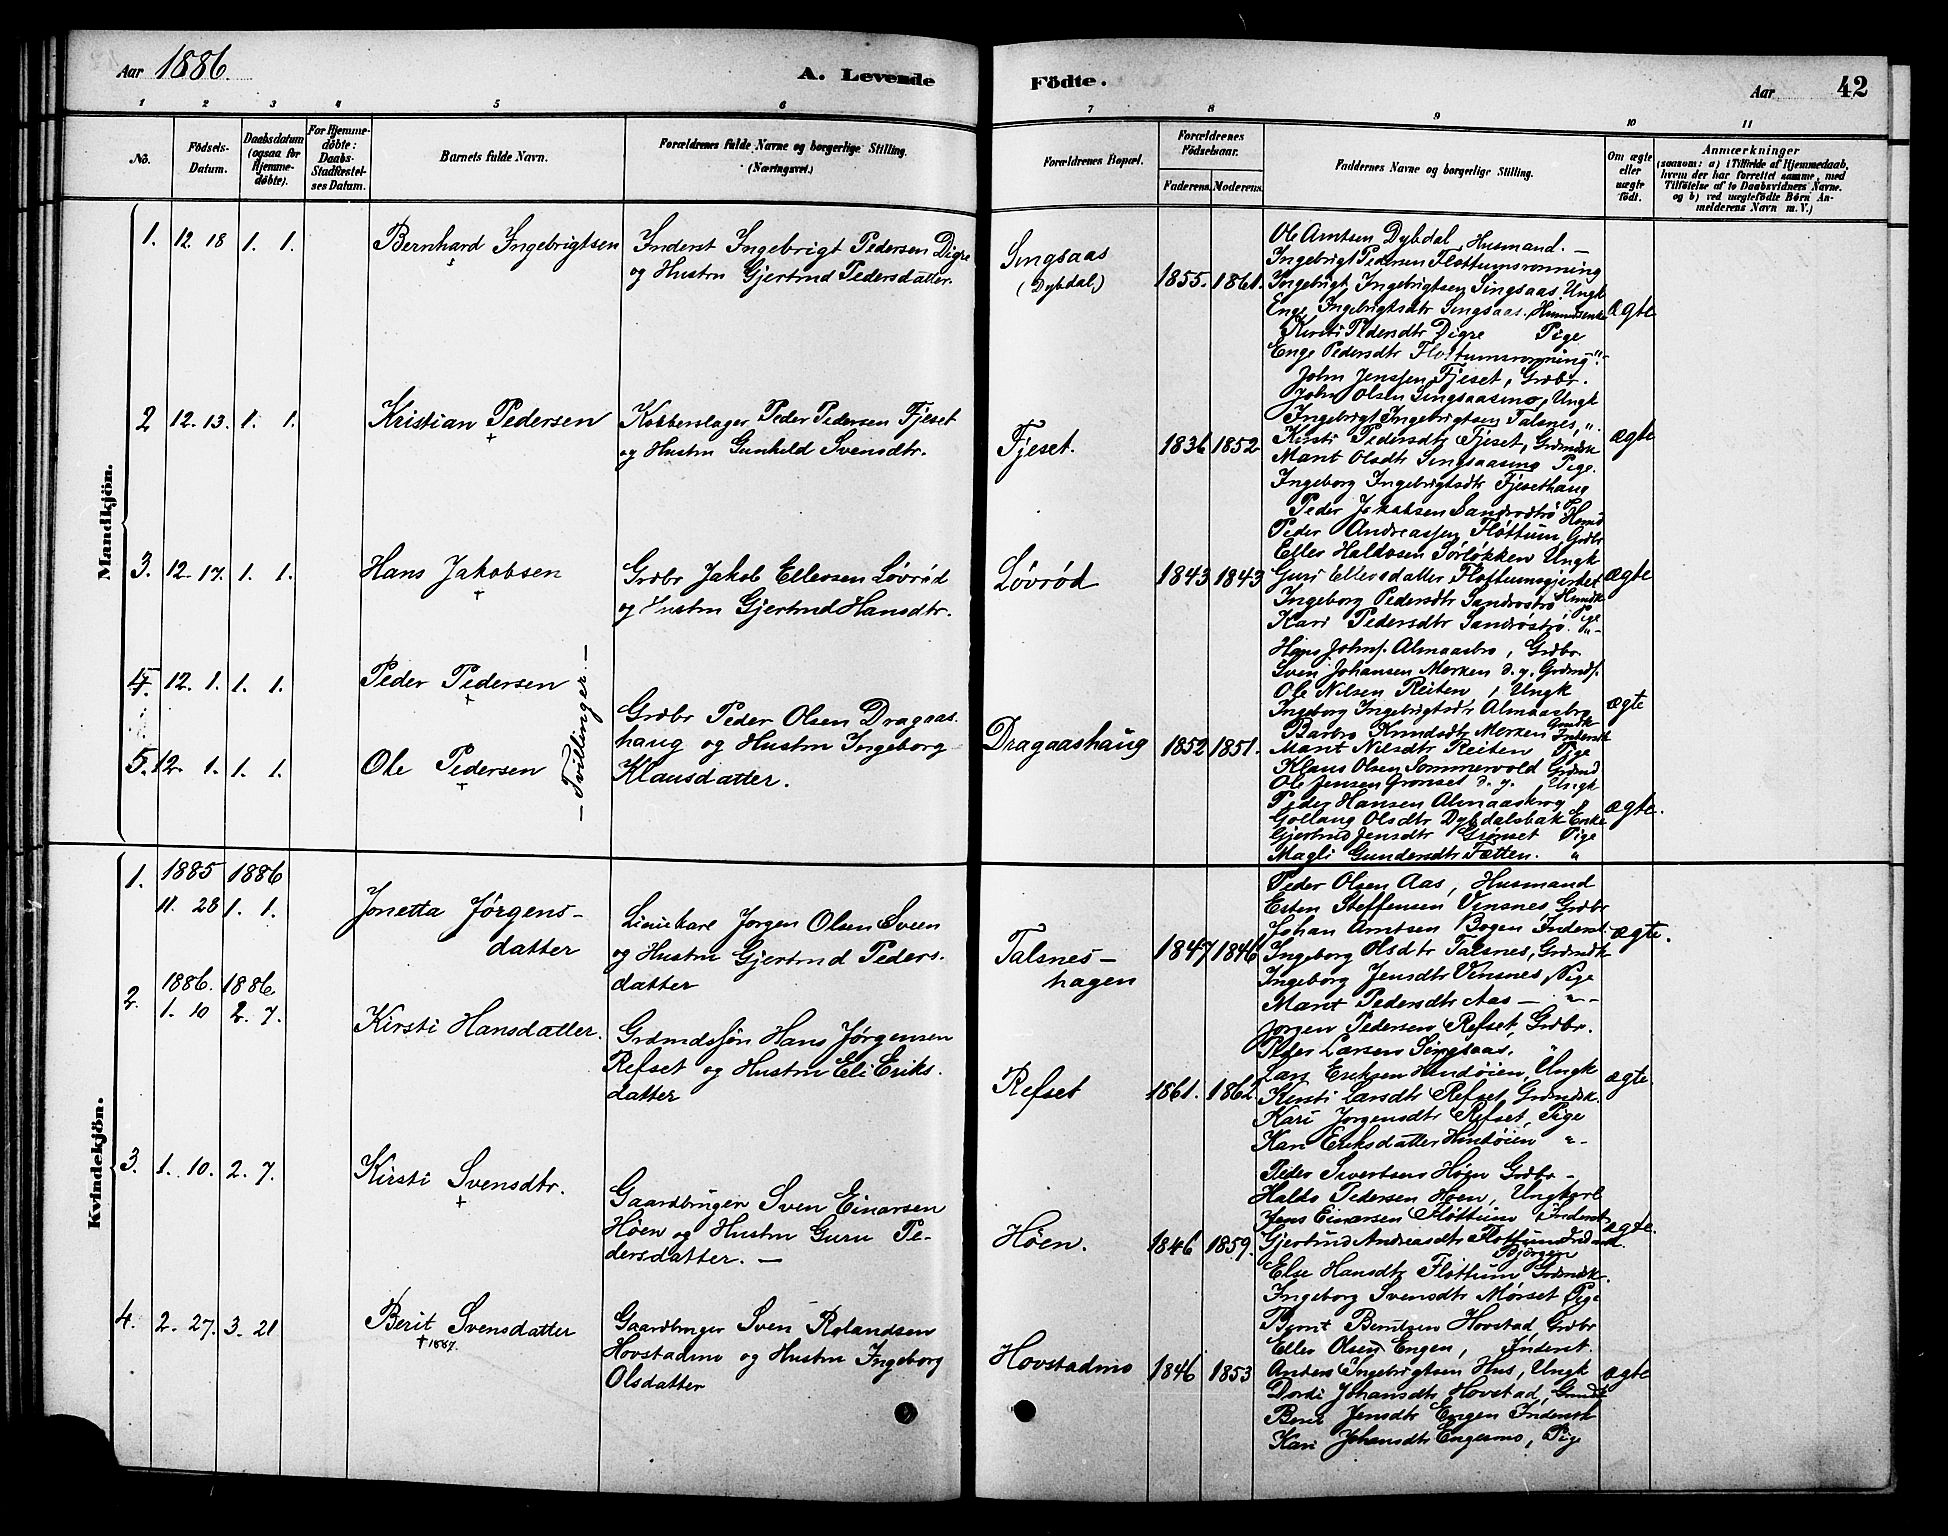 Aar 1886.
A. Levende Födte.
Aar 42
1 2 3 4 5 6 7 8 9 10 11
No.
Födsels-Datum.
Daabsdatum (ogsaa for Hjemme-døbte).
For Hjemme-døbte: Daabs-Stadfæstel-ses Datum.
Barnets fulde Navn.
Forældrenes fulde Navne og borgerlige Stilling. (Næringsvei.)
Forældrenes Bopæl.
Forældrenes Fødselsaar.
Faderens. Moderens.
Faddernes Navne og borgerlige Stilling.
Om ægte eller uægte født.
Anmærkninger
(saasom: a) i Tilfælde af Hjemmedaab,
hvem der har forrettet samme, med
Tilføielse af to Daabsvidners Navne.
og b) ved uægtefødte Børn An-
melderens Navn m. V.)
Mandkjön.
1. 12. 18 1. 1. Bernhard Ingebrigtsen
Inderst Ingebrigt Pedersen Digre
og Hustru Gjertrud Pedersdatter.
Singsaas
(Dybdal)
1855. 1861.
Ole Arntsen Dybdal, Husmand. —
Ingebrigt Pedersen Flottumsrønning
Ingebrigt Ingebrigtsen Singsaas. Ungk
Enge Ingebrigtsdtr Singsaas.
Kirsti Pedersdtr Digre Pige
Enge Pedersdtr Flottumsrønning -"-
ægte
2 12. 13. 1. 1. Kristian Pedersen
+
Kobberslager Peder Pedersen Fjeset
og Hustru Gunhild Svensdtr.
Fjeset.
1836 1852
John Jenssen Fjeset, Grdbr.
John Olsen Singsaasmo, Ungk
Ingebrigt Ingebrigtsen Talsnes, ".
Kirsti Pedersdtr Fjeset, Grdmdsk
Marit Olsdtr Singsaasmo Pige.
Ingeborg Ingebrigtsdtr Fjesethaug
ægte
3. 12. 17. 1. 1. Hans Jakobsen
+
Grdbr Jakob Ellevsen Løvrød
og Hustru Gjertrud Hansdtr.
Løvrød
1843 1843
Peder Jakobsen Sandrodtrø Husmd
Peder Andreassen Flottum, Grdbr
Ellev Haldosen Sørløkken Ungk
Guri Ellevsdatter Flottumsgjerdet
Ingeborg Pedersdtr Sandrøstrø
Kari Pedersdtr Sandrøstrø. "-
ægte
4. 12. 1. 1. 1. Peder Pedersen
+
5. 12. 1. 1. 1. Ole Pedersen
+
— Tvillinger —
Grdbr Peder Olsen Dragaas-
haug og Hustru Ingeborg
Klausdatter.
Dragaashaug
1852 1851.
Hans Johns. Almaasbro, Grdbr.
Sven Johansen Morken d. y. Grdmds.
Ole Nilsen Reiten, Ungk
Ingeborg Ingebrigtsdtr Almaasbro
Barbro Knudsdtr Morken
Marit Nilsdtr Reiten Pige
Klaus Olsen Sommervold Grdmd
Ole Jensen Grønset d. y. Ungk
Peder Hansen Almaaskrog "
Gollaug Olsdtr Dybdalsbak Enke
Gjertrud Jensdtr Grønset Pige
Magli Gundersdtr Fætten. "
ægte
ægte.
Kvindekjön.
1. 1885 1886
11. 28 1. 1. Jonetta Jørgens-
datter
Liniekarl Jørgen Olsen Sveen
og Hustru Gjertrud Peders-
datter
Talsnes-
hagen
1847 1846
Peder Olsen Aas, Husmand
Esten Steffensen Vinsnes Grdbr
Johan Arntsen Bogen Inderst.
Ingeborg Olsdtr Talsnes, Grdmdk
Ingeborg Jensdtr Vinsnes, Pige
Marit Pedersdtr Aas — "-
ægte.
2. 1886. 1886.
1. 10 2. 7. Kirsti Hansdatter.
Grdmdssøn Hans Jørgensen
Refset og Hustru Eli Eriks-
datter
Refset
1861. 1862.
Jørgen Pedersen Refset, Grdbr.
Peder Larsen Singsaas. "
Lars Eriksen Hindøien, Ungk
Kirsti Larsdtr Refset, Grdmdsk.
Kari Jørgensdtr Refset, Pige
Kari Eriksdatter Hindøien "-
ægte.
3. 1. 10. 2. 7. Kirsti Svensdtr.
+
Gaardbruger Sven Einarsen
Høen og Hustru Guru Pe-
dersdatter. —
Høen.
1846 1859.
Peder Sivertsen Høen Grdbr —
Haldo Pedersen Høen, Ungkarl
Jens Einarsen Flottum Inderst
Gjertrud Andreasdtr Flottum
Bjørgen
Else Hansdtr Flottum Grdmdk.
Ingeborg Svensdtr Mørset Pige
ægte.
4. 2. 27. 3. 21 Berit Svensdatter
+ 1887.
Gaardbruger Sven Rolandsen
Hovstadmo og Hustru Ingeborg
Olsdatter
Hovstadmo
1846 1853
Bernt Berntsen Hovstad, Grdbr
Ellev Olsen Engen, Inderst.
Anders Ingebrigtsen Hus, Ungk
Dordi Johansdtr Hovstad, Grdmdk
Berit Jensdtr Engen Inderstk
Kari Johansdtr Engesmo, Pige
ægte